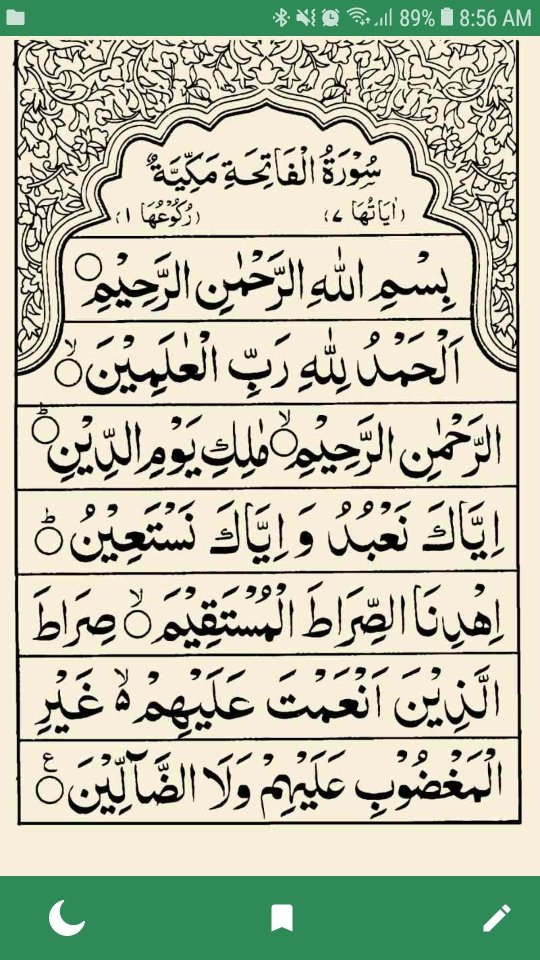 89% 8:56 AM
سُوْرَةُ الْفَاتِحَةِ مَكِّيَّةٌ
(اٰيَاتُهَا ٧) (رُكُوْعُهَا ١)
بِسْمِ اللّٰهِ الرَّحْمٰنِ الرَّحِيْمِ○
اَلْحَمْدُ لِلّٰهِ رَبِّ الْعٰلَمِيْنَ○ۙ
الرَّحْمٰنِ الرَّحِيْمِ○ۙ مٰلِكِ يَوْمِ الدِّيْنِ○ؕ
اِيَّاكَ نَعْبُدُ وَ اِيَّاكَ نَسْتَعِيْنُ○ؕ
اِهْدِنَا الصِّرَاطَ الْمُسْتَقِيْمَ○ۙ صِرَاطَ
الَّذِيْنَ اَنْعَمْتَ عَلَيْهِمْ ۙ۵ غَيْرِ
الْمَغْضُوْبِ عَلَيْهِمْ وَلَا الضَّآلِّيْنَ○ع